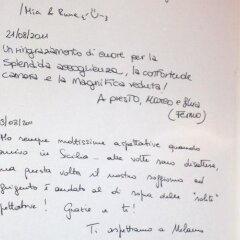 /Mia & Rune
21/08/2011
Un ringraziamento di cuore per la
splendida accoglienza, la confortevole
camera e la magnifica veduta!
A presto,
(Fermo)
Ho sempre moltissime aspettative quando
arrivo in Sicilia - alle volte sono disattese,
ma questa volta il nostro soggiorno ad
Agrigento è andato al di sopra delle "solite"
aspettative! Grazie a te!
Ti aspettiamo a Milano